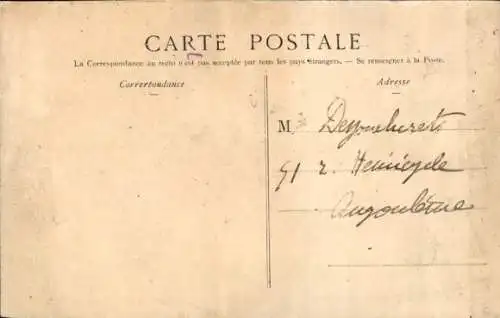 CARTE POSTALE
La Correspondance au recto n'est pas acceptée par tous les pays étrangers. — Se renseigner à la Poste.
Correspondance
Adresse
M
51 r. Hémicycle
Angoulême